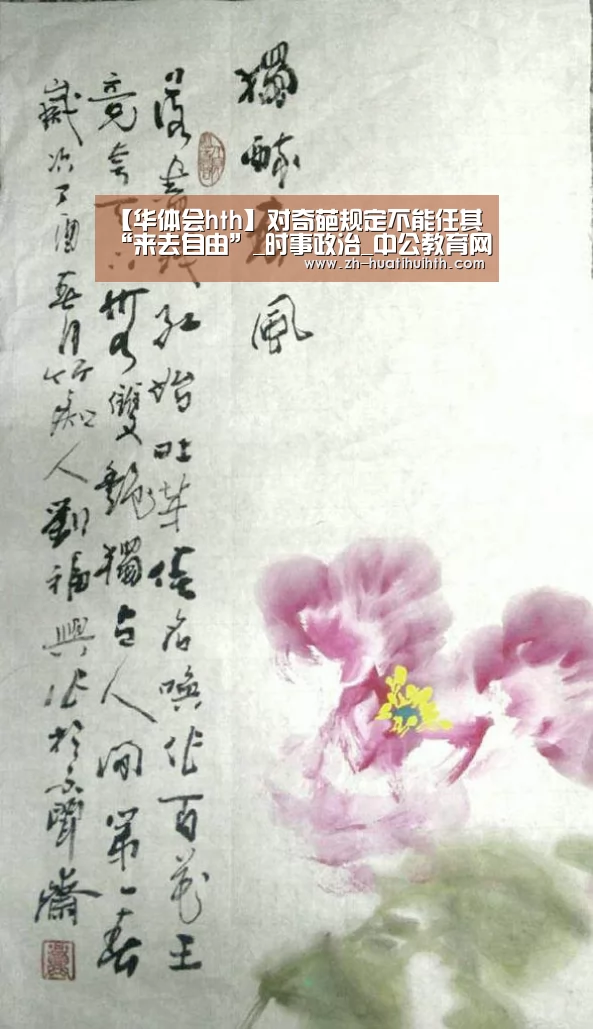 【华体会hth】对奇葩规定不能任其
“来去自由”_时事政治_中公教育网
www.zh-huatihuihth.com
獨醉春風
落盡殘紅始吐芳佳名喚作百花王
竞夸天下無雙艷獨占人間第一春
歲次丁酉春月竹痴人劉福興作於聞齋